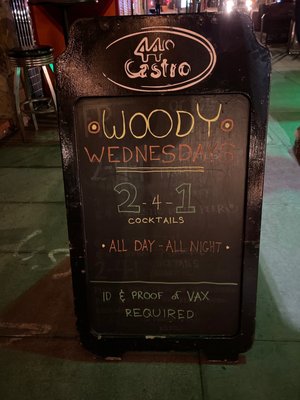 440
Castro
WOODY
WEDNESDAYS
2-4-1
COCKTAILS
· ALL DAY - ALL NIGHT ·
ID & PROOF of VAX
REQUIRED